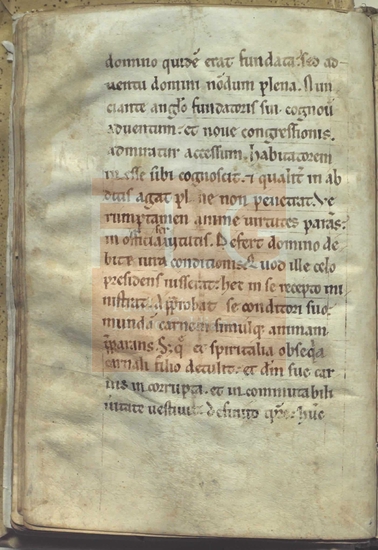 domino quidē erat fundata. sed ad
uentu domini nōdum plena. Nun
ciante anglo fundatoris sui cognou
aduentum. et noue congressionis
admiratur accessum. habitatorem
inesse sibi cognoscit. ⁊ qualit in ab
ditis agat plene non penetrat. Ve
rumptamen anime uirtutes parās
in officia Defert domino de
bite iura conditionis. Quod ille celo
presidens iusserat. hec in se recepto mi
nistrat. Approbat se conditori suo
mundā carnem simulq; animam
pparans. S; et spiritalia obseqa
carnali filio detulit. et dm sue car
nis incorrupta. et incommutabili
uestiuit.